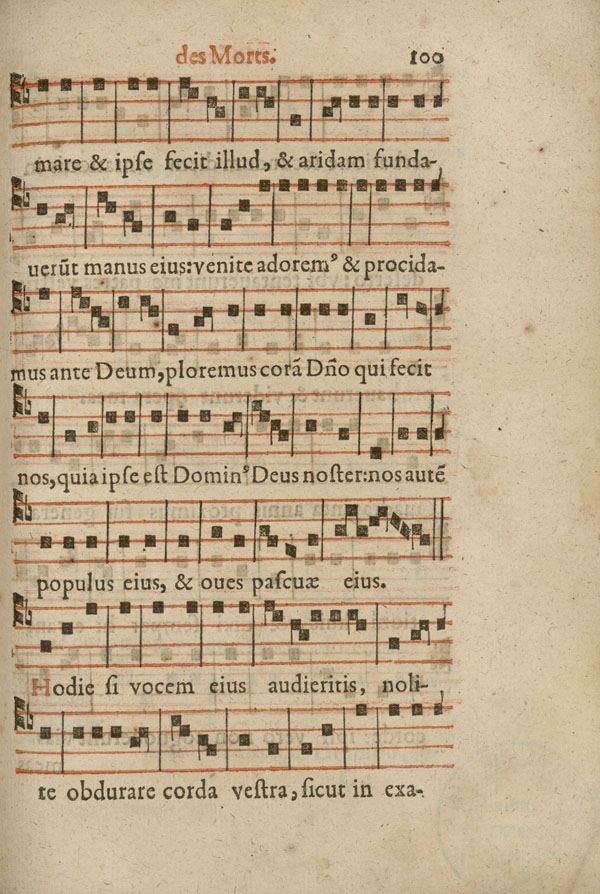 des Morts. 100
mare & ipſe fecit illud, & aridam funda-
uerũt manus eius:venite adoremꝰ & procida-
mus ante Deum, ploremus corã Dño qui fecit
nos, quia ipſe eſt Dominꝰ Deus noſter:nos autẽ
populus eius, & oues paſcuæ eius.
Hodie ſi vocem eius audieritis, noli-
te obdurare corda veſtra, ſicut in exa-